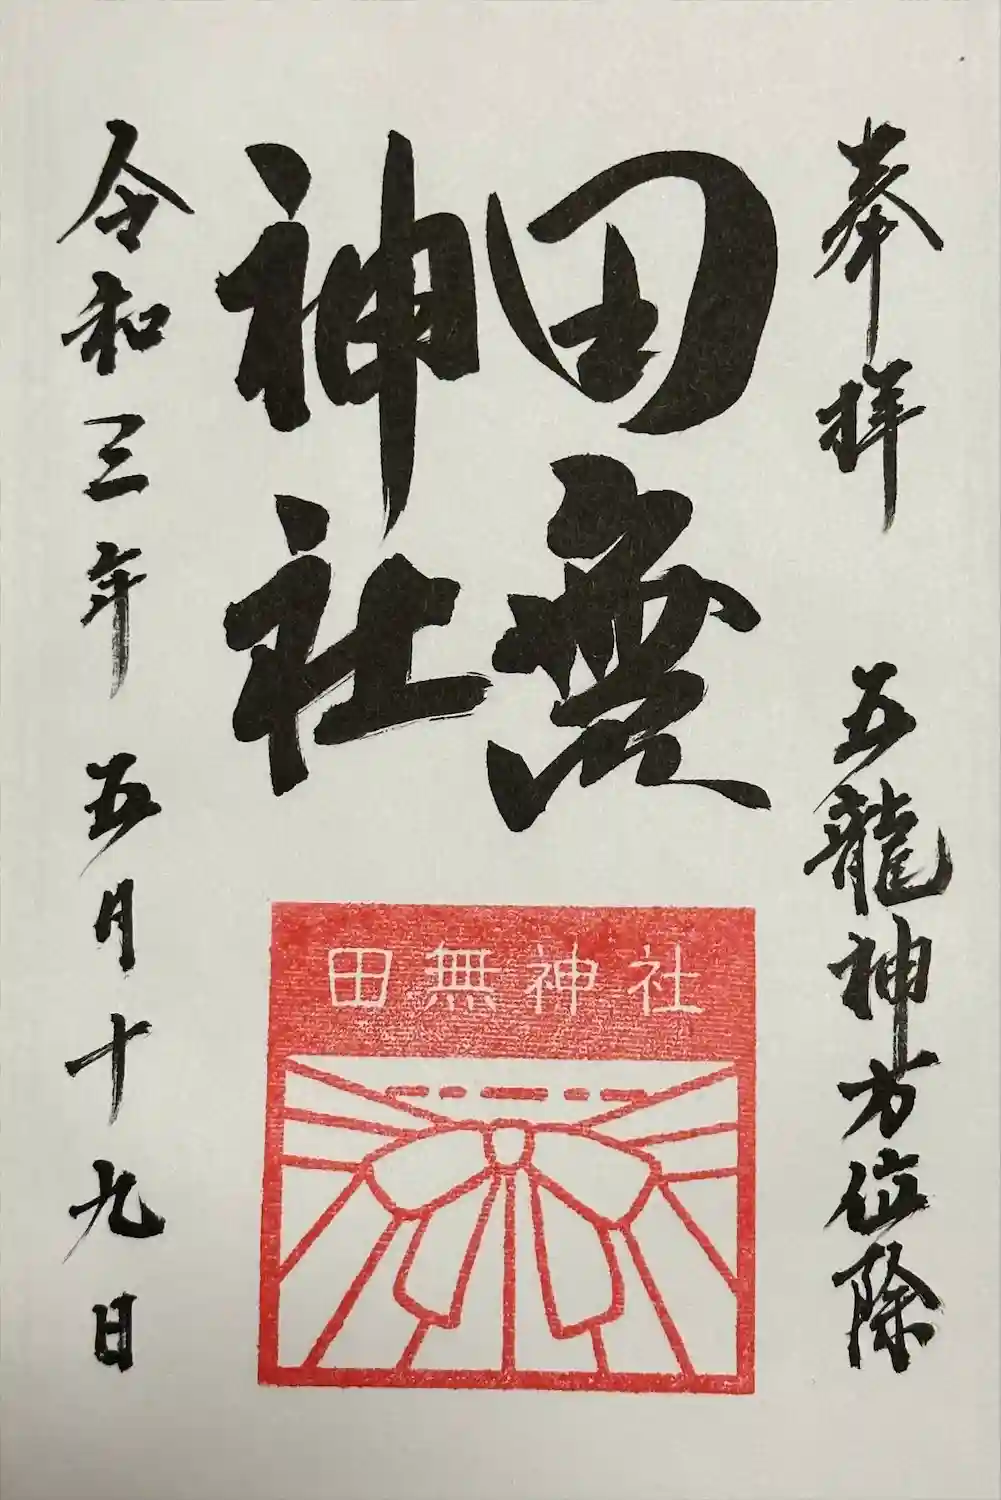 奉拝 五龍神方位除
田無
神社
令和三年 五月十九日
田無神社